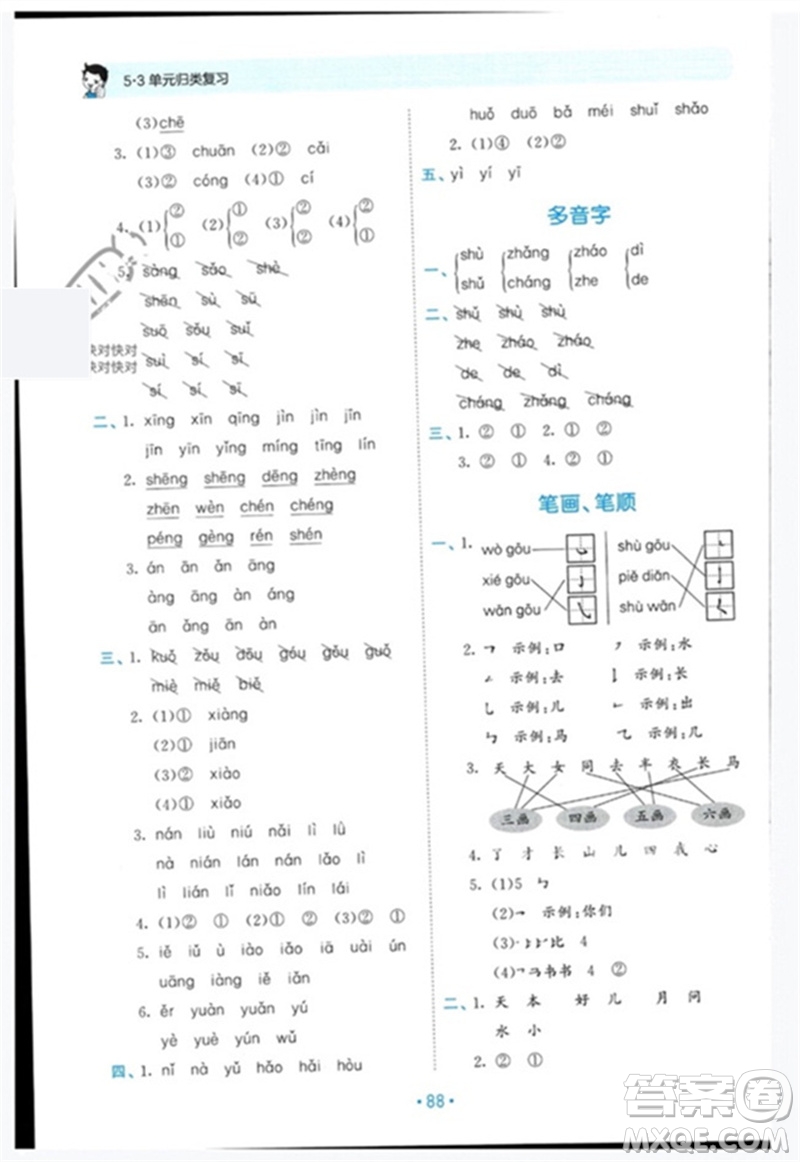 5·3 单元归类复习
(3)chē
3. (1)③ chuān (2)② cǎi
(3)② cóng (4)① cí
4. (1) ② ① (2) ① ② (3) ② ① (4) ② ①
5. sàng sǎo shè
shēn sù sū
suō sǒu suǐ
suì sí sí
sí sí sī
快对快对
快对快对
二、1. xīng xīn qīng jìn jìn jīn
jīn yīn yǐng míng tīng lín
2. shēng shēng dēng zhèng
zhēn wèn chén chéng
péng gèng rén shén
3. án ān ǎn āng
àng āng ān àn
ān ǎng ān àn
三、1. kuǒ zǒu gōu góu gǒu guǒ
miè miě biě
2. (1)① xiàng
(2)① jiān
(3)② xiào
(4)① xiǎo
3. nán liù niú nǎi lì lǜ
nà nián lán nán niǎo lǐ
lì lián lǐ niǎo lín lái
4. (1)② ① (2)① ② (3)② ①
5. iě iǔ ù iào iǎo uài ún
uāng iàng iě iǎo iā
6. ěr yuàn yuǎn yú
yè yuè yún wǔ
四、1. nǐ nà yǔ hǎo hǎi hòu
huǒ duō bǎ méi shuǐ shǎo
2. (1)④ (2)②
五、yì yí yī
多音字
一、shù shǔ zhǎng cháng zháo zhe dì de
二、shǔ shù shù
zhe zháo zháo
de de dì
cháng zhǎng cháng
三、1. ② ① 2. ② ①
3. ② ① 4. ② ①
笔画、笔顺
一、1. wò gōu shù gōu
xié gōu piě diǎn
wān gōu shù wān
2. ㇕ 示例:口 示例:水
示例:去 示例:长
示例:儿 示例:出
㇉ 示例:马 ㇈ 示例:几
3. 天 大 女 同 去 半 衣 长 马
三画 四画 五画 六画
4. 了 才 长 山 儿 四 我 心
5. (1)5 ㇉
(2) 示例:你们
(3) 比 4
(4) 马书书 4 ②
二、1. 天 本 好 儿 月 问
水 小
2. ② ①
·88·
答案圈
MXQE.COM